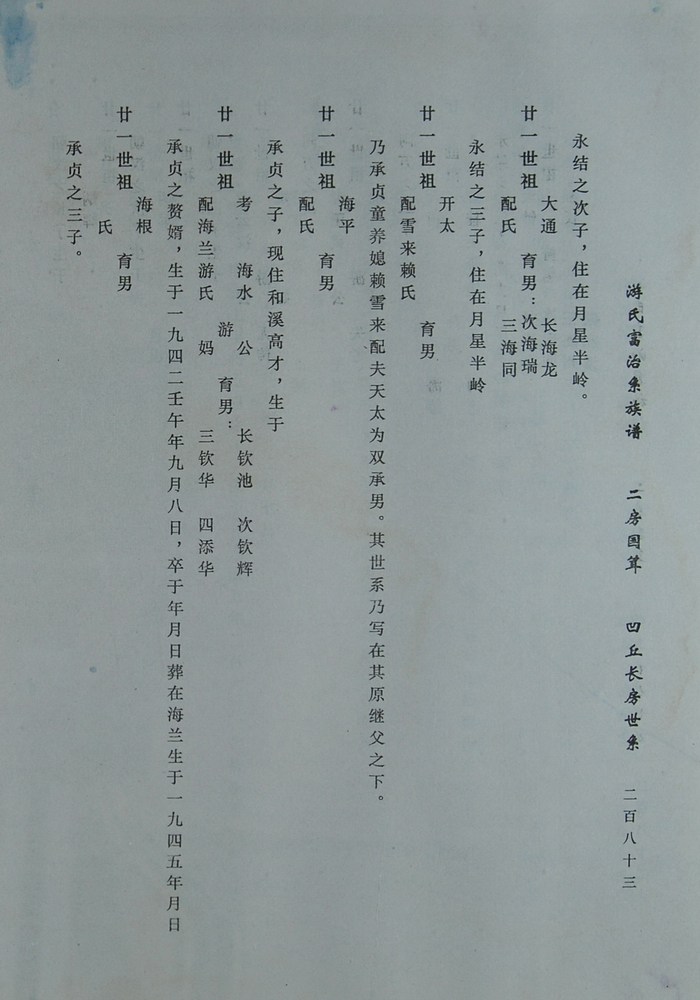 游氏富治系族谱 二房国茸 凹丘长房世系 二百八十三
永结之次子，住在月星半岭。
廿一世祖
大通
配氏
育男：
长海龙
次海瑞
三海同
永结之三子，住在月星半岭
廿一世祖
开太
配雪来赖氏
育男
乃承贞童养媳赖雪来配夫天太为双承男。其世系乃写在其原继父之下。
廿一世祖
海平
配氏
育男
承贞之子，现住和溪高才，生于
廿一世祖
考 海水 公
配海兰游氏 妈
游
育男：
长钦池 次钦辉
三钦华 四添华
承贞之赘婿，生于一九四二壬午年九月八日，卒于年月日葬在海兰生于一九四五年月日
廿一世祖
海根
氏
育男
承贞之三子。